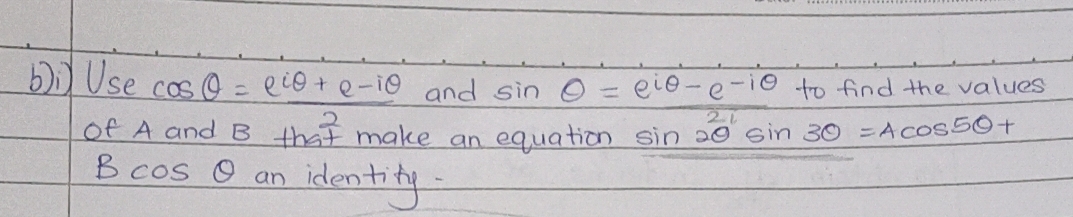 b)i) Use cos θ = eiθ + e-iθ and sin θ = eiθ - e-iθ to find the values
2 2i
of A and B that make an equation sin 2θ sin 3θ = A cos5θ +
B cos θ an identity.